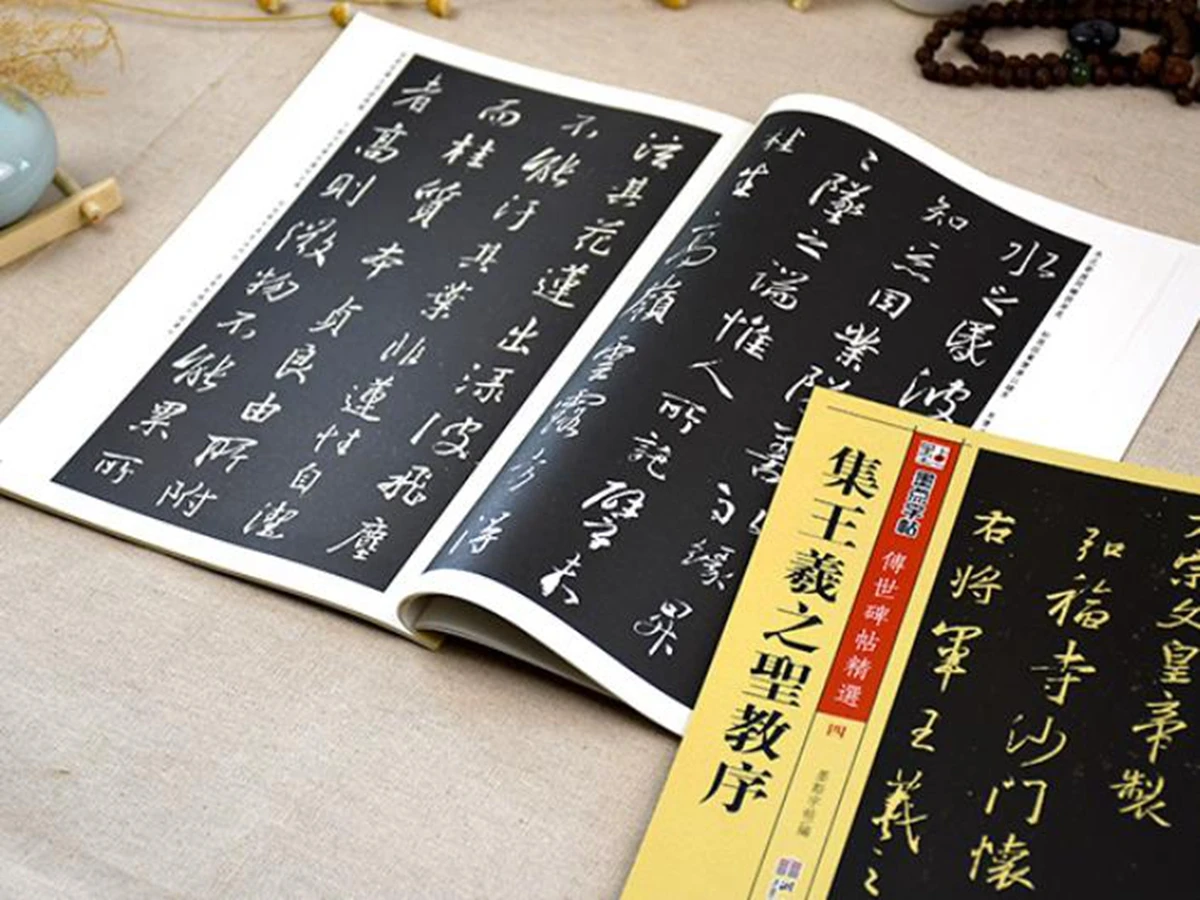 水之昬波
知惡因業墜善以緣昇
〻墜之端惟人所託譬夫
桂生高嶺雲露方得
泫其花蓮出淥波飛塵
不能汙其葉非蓮性自潔
而桂質本貞良由所附
者高則微物不能累所
墨点字帖
傳世碑帖精選
四
集王羲之聖教序
墨點字帖編
宗文皇帝製
弘福寺沙門懷
右將軍王羲之